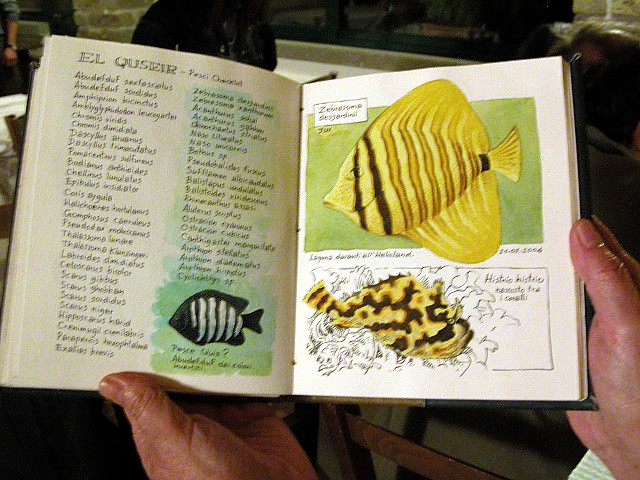 EL QUSEIR - Pesci Checklist
Abudefduf sexfasciatus
Abudefduf sordidus
Amphiprion bicinctus
Amblyglyphidodon leucogaster
Chromis viridis
Chromis dimidiata
Dascyllus aruanus
Dascyllus trimaculatus
Pomacentrus sulfureus
Bodianus anthioides
Cheilinus lunulatus
Epibulus insidiator
Coris aygula
Halichoeres hortulanus
Gomphosus caeruleus
Pseudodax moluccanus
Thalassoma lunare
Thalassoma klunzingeri
Labroides dimidiatus
Cetoscarus bicolor
Scarus gibbus
Scarus ghobban
Scarus sordidus
Scarus niger
Hipposcarus harid
Crenimugil crenilabris
Parapercis hexophtalma
Exallias brevis
Zebrasoma desjardinii
Zebrasoma xanthurum
Acanthurus sohal
Acanthurus gahhm
Ctenochaetus striatus
Naso lituratus
Naso unicornis
Bothus sp.
Pseudobalistes fuscus
Sufflamen albicaudatus
Balistapus undulatus
Balistoides viridescens
Rhinecanthus assasi
Aluterus scriptus
Ostracion cyanurus
Ostracion cubicus
Canthigaster margaritata
Arothron stellatus
Arothron diadematus
Arothron hispidus
Cyclichthys sp.
Pesce Quiz?
Abudefduf dai colori
Zebrasoma
desjardinii
JUV.
Laguna davanti all'Helioland.
21.08.2006
Histrio histrio
nascosto tra
i coralli